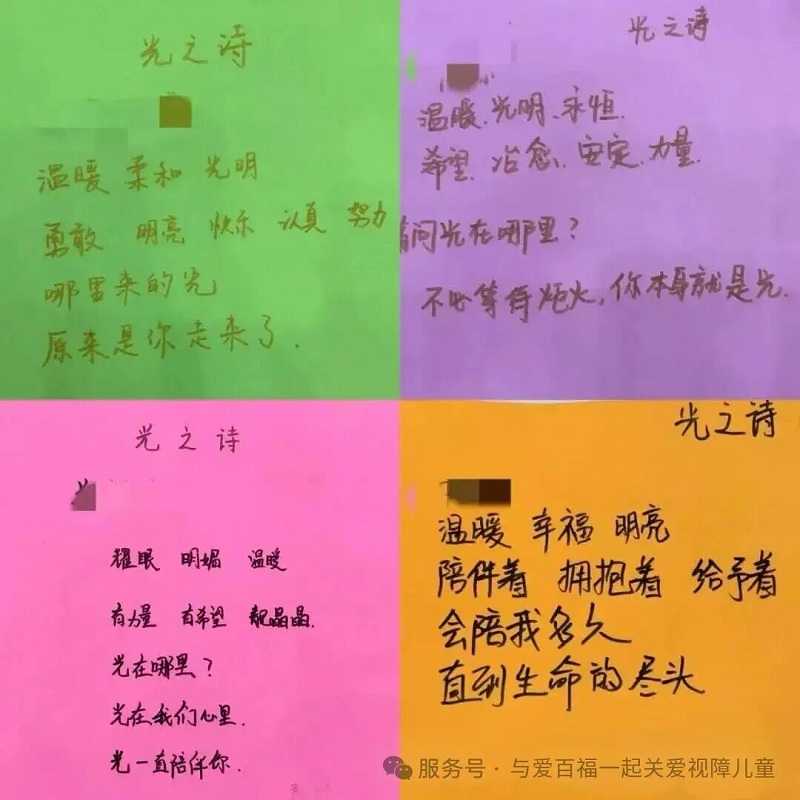 光之诗
温暖 柔和 光明
勇敢 明亮 快乐 认真 努力
哪里来的光
原来是你走来了.
光之诗
温暖、光明、永恒.
希望、治愈、安定、力量.
问光在哪里？
不必等待炬火，你本身就是光.
光之诗
耀眼 明媚 温暖
有力量 有希望 靓晶晶.
光在哪里？
光在我们心里.
光一直陪伴你.
光之诗
温暖 幸福 明亮
陪伴着 拥抱着 给予着
会陪我多久
直到生命的尽头
服务号·与爱百福一起关爱视障儿童